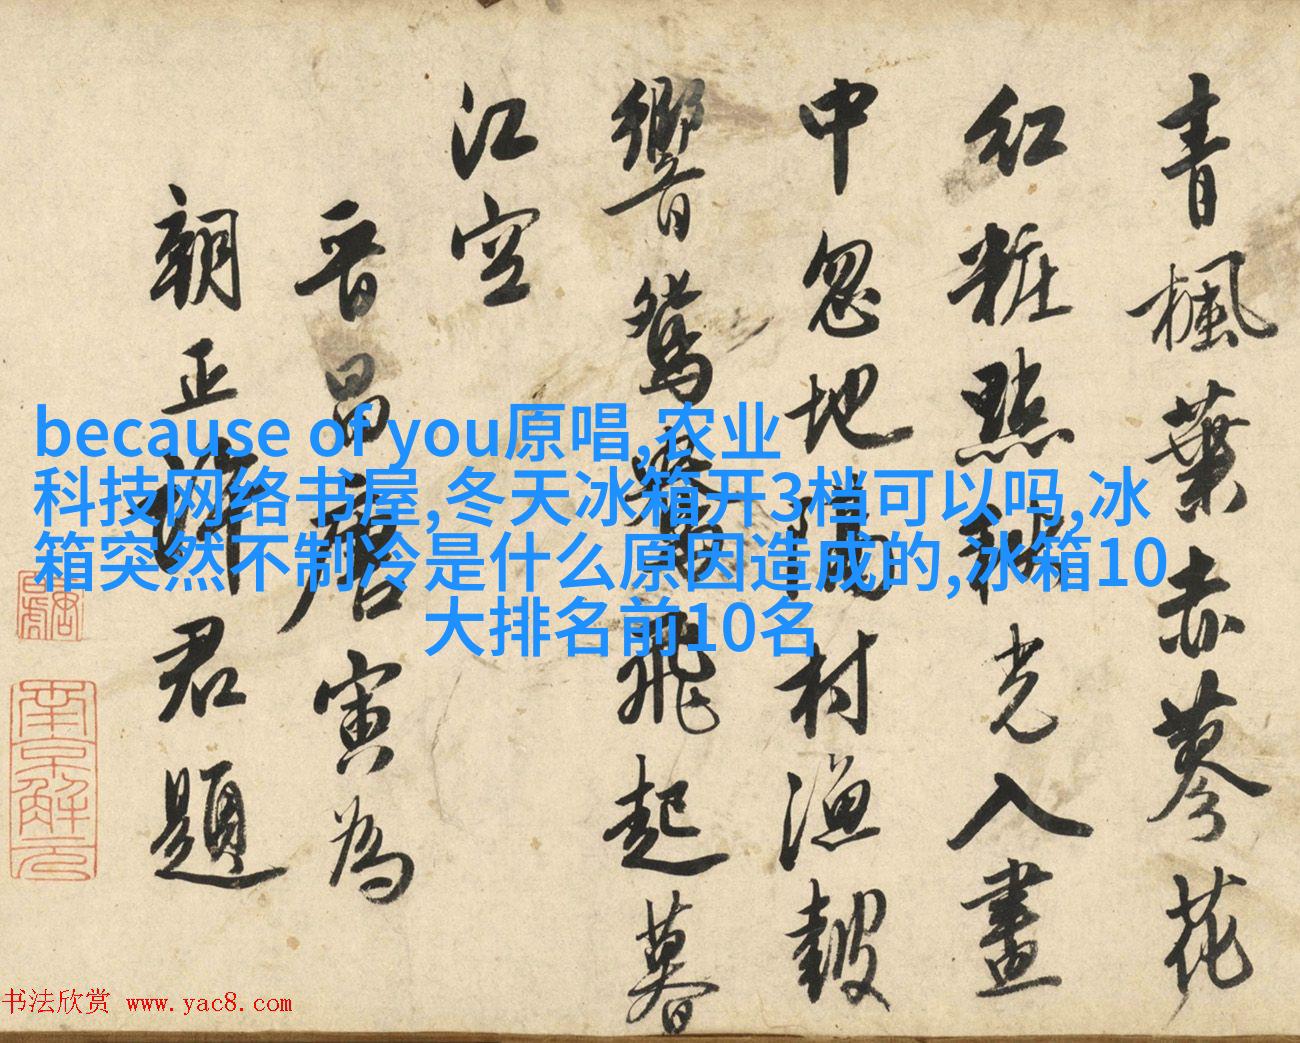 青楓葉赤蓼花
紅粧點秋光入畫
中忽地隔村漁鼓
響鴛鴦飛起暮
江空
晋昌唐寅為
朝正詳君題
because of you原唱,农业
科技网络书屋,冬天冰箱开3档可以吗,冰
箱突然不制冷是什么原因造成的,冰箱10
大排名前10名
南京解元
书法欣赏 www.yac8.com